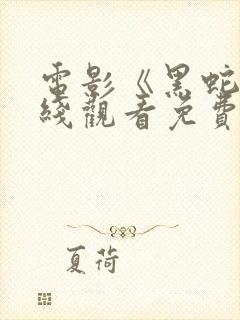 電影《黑蛇
綫觀看免費
夏荷